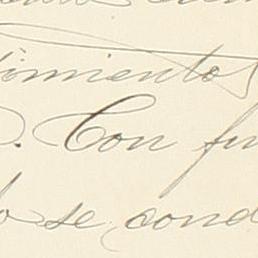 imiento
. Con fu
lo se cond